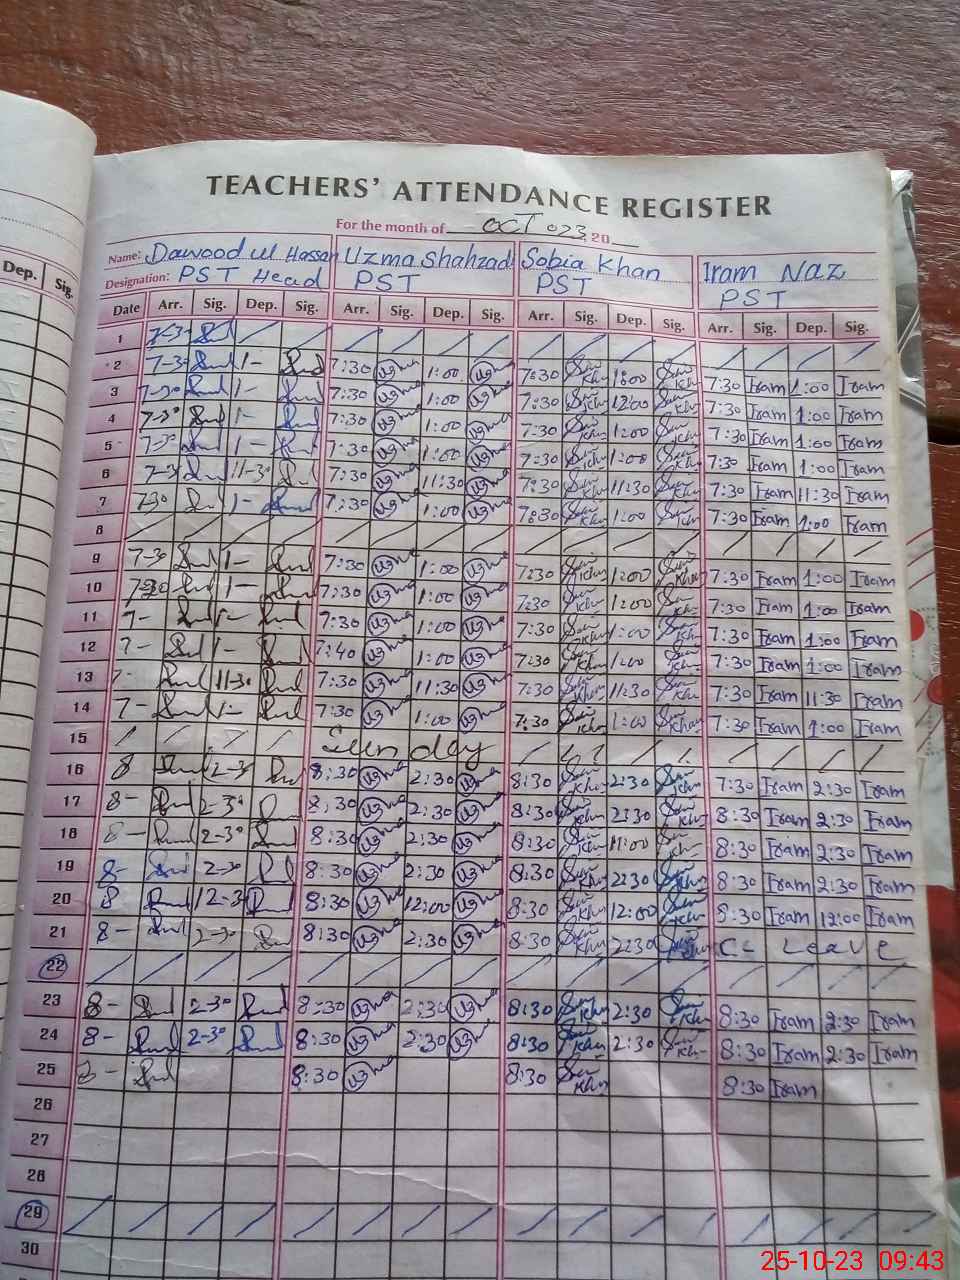 TEACHERS' ATTENDANCE REGISTER
For the month of OCT 023, 20
Name: Dawood ul Hassan Uzma Shahzad Sobia Khan Iram Naz
Designation: PST Head PST PST PST
Dep. Sig.
Date Arr. Sig. Dep. Sig. Arr. Sig. Dep. Sig. Arr. Sig. Dep. Sig. Arr. Sig. Dep. Sig.
1 7-30
2 7-30 1- 7:30 Uzma 1:00 Uzma 7:30 Khan 1:00 Khan 7:30 Iram 1:00 Iram
3 7-30 1- 7:30 Uzma 1:00 Uzma 7:30 Khan 12:00 Khan 7:30 Iram 1:00 Iram
4 7-30 1- 7:30 Uzma 1:00 Uzma 7:30 Khan 1:00 Khan 7:30 Iram 1:00 Iram
5 7-30 1- 7:30 Uzma 1:00 Uzma 7:30 Khan 1:00 Khan 7:30 Iram 1:00 Iram
6 7-30 11-30 7:30 Uzma 11:30 Uzma 7:30 Khan 11:30 Khan 7:30 Iram 11:30 Iram
7 730 1- 7:30 Uzma 1:00 Uzma 7:30 Khan 1:00 Khan 7:30 Iram 1:00 Iram
8
9 7-30 1- 7:30 Uzma 1:00 Uzma 7:30 Khan 1:00 Khan 7:30 Iram 1:00 Iram
10 7-30 1- 7:30 Uzma 1:00 Uzma 7:30 Khan 1:00 Khan 7:30 Iram 1:00 Iram
11 7- 1- 7:30 Uzma 1:00 Uzma 7:30 Khan 1:00 Khan 7:30 Iram 1:00 Iram
12 7- 1- 7:40 Uzma 1:00 Uzma 7:30 Khan 1:00 Khan 7:30 Iram 1:00 Iram
13 7- 11-30 7:30 Uzma 11:30 Uzma 7:30 Khan 11:30 Khan 7:30 Iram 11:30 Iram
14 7- 1- 7:30 Uzma 1:00 Uzma 7:30 Khan 1:00 Khan 7:30 Iram 1:00 Iram
15 Sunday
16 8 2-30 8:30 Uzma 2:30 Uzma 8:30 Khan 2:30 Khan 7:30 Iram 2:30 Iram
17 8- 2-30 8:30 Uzma 2:30 Uzma 8:30 Khan 2:30 Khan 8:30 Iram 2:30 Iram
18 8- 2-30 8:30 Uzma 2:30 Uzma 8:30 Khan 11:00 Khan 8:30 Iram 2:30 Iram
19 8- 2-30 8:30 Uzma 2:30 Uzma 8:30 Khan 2:30 Khan 8:30 Iram 2:30 Iram
20 8 12-30 8:30 Uzma 12:00 Uzma 8:30 Khan 12:00 Khan 8:30 Iram 12:00 Iram
21 8- 2-30 8:30 Uzma 2:30 Uzma 8:30 Khan 2:30 Khan C- Leave
22
23 8- 2-30 8:30 Uzma 2:30 Uzma 8:30 Khan 2:30 Khan 8:30 Iram 2:30 Iram
24 8- 2-30 8:30 Uzma 2:30 Uzma 8:30 Khan 2:30 Khan 8:30 Iram 2:30 Iram
25 8- 8:30 Uzma 8:30 Khan 8:30 Iram
26
27
28
29
30
25-10-23 09:43